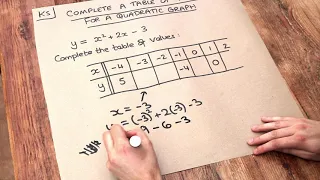 K5 COMPLETE A TABLE OF
FOR A QUADRATIC GRAPH
y = x² + 2x - 3
Complete the table of values
x -4 -3 -2 -1 0 1 2
y 5 -4 0
x = -3
y = (-3)² + 2(-3) - 3
9 - 6 - 3